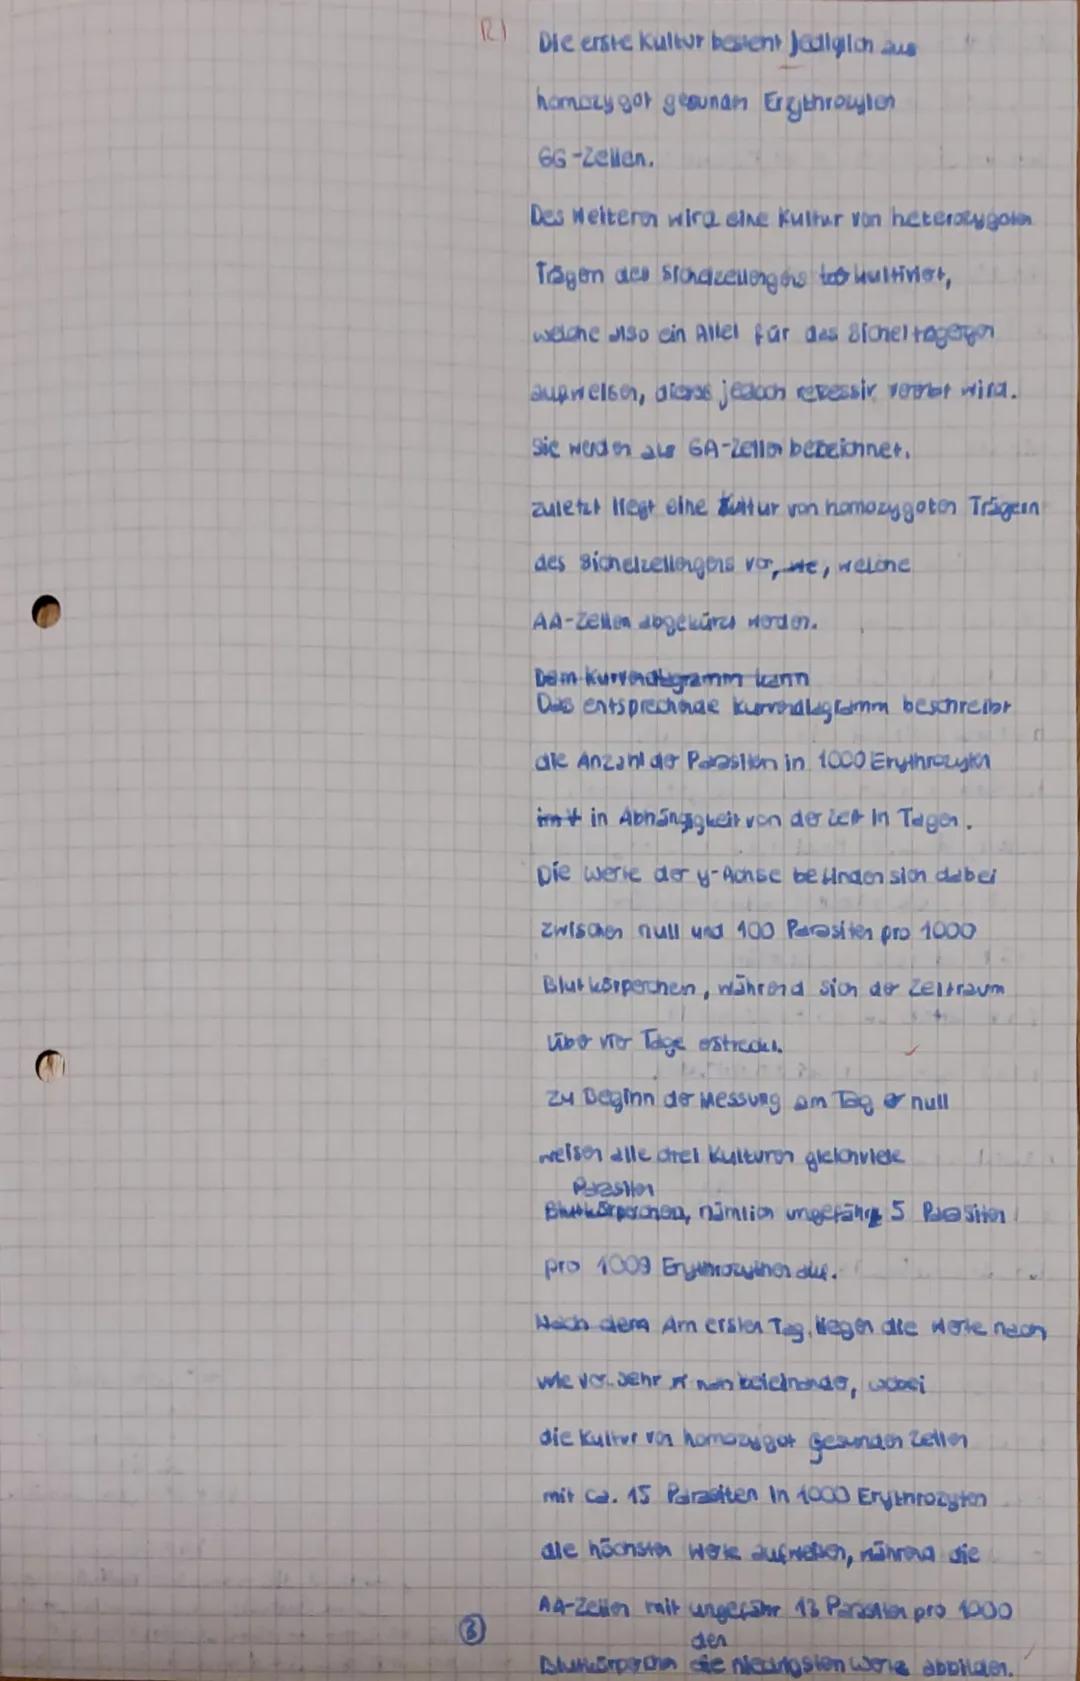 R)
Die erste Kultur besteht lediglich aus
homozygot gesunden Erythrozyten
GG-Zellen.
Des Weiteren wird eine Kultur von heterozygoten
Trägern des Sichelzellengens kultiviert,
welche also ein Allel für das
aufweisen, dieses jedoch rezessiv vererbt wird.
Sie werden als GA-Zellen bezeichnet.
Zuletzt liegt eine Kultur von homozygoten Trägern
des Sichelzellengens vor, we, welche
AA-Zellen abgekürzt werden.
Dem Kurvendiagramm kann
Das entsprechende Kurvendiagramm beschreibt
die Anzahl der Parasiten in 1000 Erythrozyten
in Abhängigkeit von der Zeit in Tagen.
Die Werte der y-Achse befinden sich dabei
zwischen null und 100 Parasiten pro 1000
Blutkörperchen, während sich der Zeitraum
über vier Tage erstreckt.
Zu Beginn der Messung am Tag null
weisen alle drei Kulturen gleichviele
Parasiten
Blutkörperchen, nämlich ungefähr 5 Parasiten
pro 1000 Erythrozyten auf.
Nach dem Am ersten Tag, liegen die Werte nach
wie vor sehr nah beieinander, wobei
die Kultur von homozygot gesunden Zellen
mit ca. 15 Parasiten in 1000 Erythrozyten
die höchsten Werte aufweisen, während die
AA-Zellen mit ungefähr 13 Parasiten pro 1000
den
Blutkörperchen die niedrigsten Werte abbilden.
3